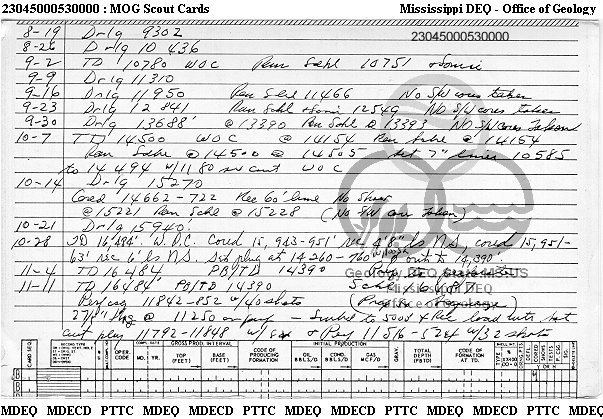 23045000530000 : MOG Scout Cards Mississippi DEQ - Office of Geology
8-19 Drlg 9302 23045000530000
8-26 Drlg 10 436
9-2 TD 10780 WOC Ran Schl 10751 + Sonic
9-9 Drlg 11310
9-16 Drlg 11950 Ran Schl 11466 No S/W cores taken
9-23 Drlg 12 841 Ran Schl + Sonic 12549 No S/W cores taken
9-30 Drlg 13688' @ 13390 Ran Schl @ 13393 No S/W cores Taken
10-7 TD 14500 WOC @ 14154 Ran Schl @ 14154
Ran Schl @ 14500 @ 14505 - Set 7" liner 10585
to 14 494 w/1180 sx cmt WOC
10-14 Drlg 15270
Cored 14662-722 Rec 60' lime No Show
@ 15221 Ran Schl @ 15228 (No S/W core Taken)
10-21 Drlg 15940
10-28 TD 16,484' W.O.C. Cored 15,943-951' rec 4'8" ls N.S., cored 15,951-
63' rec 6' ls N.S. Set plug at 14260-760 14,390'
11-4 TD 16484 PB/TD 14390
Geology DEQ State MS US
Mississippi DEQ
11-11 TD 16484' PB/TD 14390 Schl
Perf csg 11842-852 w/40 shots
27/8" tbg @ 11250 - Swbd to 5000 & Rec load wtr. Set
cmt plug 11792-11848 w/ & Perf 11516-524 w/32 shots
CARD SEQ. RECORD TYPE OPER. CODE COMPL. DATE MO. YR. GROSS PROD. INTERVAL TOP (FEET) BASE (FEET) CODE OF PRODUCING FORMATION INITIAL PRODUCTION OIL BBLS/D COND. BBLS/D GAS MCF/D GRAV. TOTAL DEPTH (PBTD) CODE OF FORMATION AT TD.
MDEQ MDECD PTTC MDEQ MDECD PTTC MDEQ MDECD PTTC MDEQ MDECD PTTC MDEQ